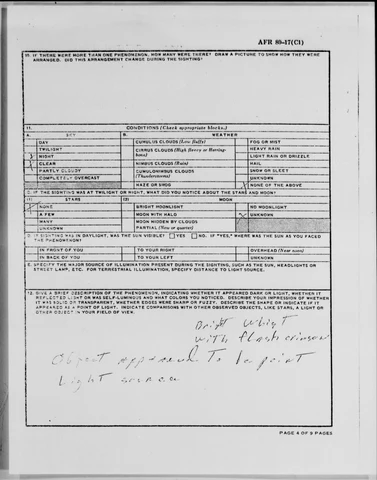 AFR 80-17(C1)
10. IF THERE WERE MORE THAN ONE PHENOMENON, HOW MANY WERE THERE? DRAW A PICTURE TO SHOW HOW THEY WERE
ARRANGED. DID THIS ARRANGEMENT CHANGE DURING THE SIGHTING?
11. CONDITIONS (Check appropriate blocks.)
A. SKY B. WEATHER
DAY CUMULUS CLOUDS (Low fluffy) FOG OR MIST
TWILIGHT CIRRUS CLOUDS (High fleecy or Herring-
bone) HEAVY RAIN
NIGHT LIGHT RAIN OR DRIZZLE
CLEAR NIMBUS CLOUDS (Rain) HAIL
PARTLY CLOUDY CUMULONIMBUS CLOUDS
(Thunderstorms) SNOW OR SLEET
COMPLETELY OVERCAST UNKNOWN
HAZE OR SMOG NONE OF THE ABOVE
C. IF THE SIGHTING WAS AT TWILIGHT OR NIGHT, WHAT DID YOU NOTICE ABOUT THE STARS AND MOON?
(1) STARS (2) MOON
NONE BRIGHT MOONLIGHT NO MOONLIGHT
A FEW MOON WITH HALO UNKNOWN
MANY MOON HIDDEN BY CLOUDS
UNKNOWN PARTIAL (New or quarter)
D. IF SIGHTING WAS IN DAYLIGHT, WAS THE SUN VISIBLE? YES NO. IF "YES," WHERE WAS THE SUN AS YOU FACED
THE PHENOMENON?
IN FRONT OF YOU TO YOUR RIGHT OVERHEAD (Near noon)
IN BACK OF YOU TO YOUR LEFT UNKNOWN
E. SPECIFY THE MAJOR SOURCE OF ILLUMINATION PRESENT DURING THE SIGHTING, SUCH AS THE SUN, HEADLIGHTS OR
STREET LAMP, ETC. FOR TERRESTRIAL ILLUMINATION, SPECIFY DISTANCE TO LIGHT SOURCE.
12. GIVE A BRIEF DESCRIPTION OF THE PHENOMENON, INDICATING WHETHER IT APPEARED DARK OR LIGHT, WHETHER IT
REFLECTED LIGHT OR WAS SELF-LUMINOUS AND WHAT COLORS YOU NOTICED. DESCRIBE YOUR IMPRESSION OF WHETHER
IT WAS SOLID OR TRANSPARENT, WHETHER EDGES WERE SHARP OR FUZZY. DESCRIBE THE SHAPE OR INDICATE IF IT
APPEARED AS A POINT OF LIGHT. INDICATE COMPARISONS WITH OTHER OBSERVED OBJECTS, LIKE STARS, A LIGHT OR
OTHER OBJECT IN YOUR FIELD OF VIEW.
with flash crimson
Object appeared to be point
Light source
PAGE 4 OF 9 PAGES